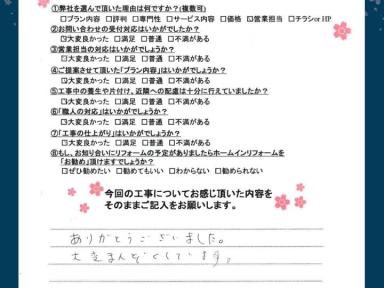 ①弊社を選んで頂いた理由は何ですか?(複数可)
□プラン内容 □評判 □専門性 □サービス内容 □価格 ☑営業担当 □チラシor HP
②お問い合わせの受付対応はいかがでしたか?
☑大変良かった □満足 □普通 □不満がある
③営業担当の対応はいかがでしょうか?
☑大変良かった □満足 □普通 □不満がある
④ご提案させて頂いた「プラン内容」はいかがでしょうか?
☑大変良かった □満足 □普通 □不満がある
⑤工事中の養生や片付け、近隣への配慮は十分に行えていましたか?
☑大変良かった □満足 □普通 □不満がある
⑥「職人の対応」はいかがでしょうか?
☑大変良かった □満足 □普通 □不満がある
⑦「工事の仕上がり」はいかがでしょうか?
☑大変良かった □満足 □普通 □不満がある
⑧もし、お知り合いにリフォームの予定がありましたらホームインリフォームを
「お勧め」頂けますでしょうか?
☑ぜひ勧めたい □勧めてもいい □わからない □勧められない
今回の工事についてお感じ頂いた内容を
そのままご記入をお願いします。
ありがとうございました。
大変まんぞくしています。